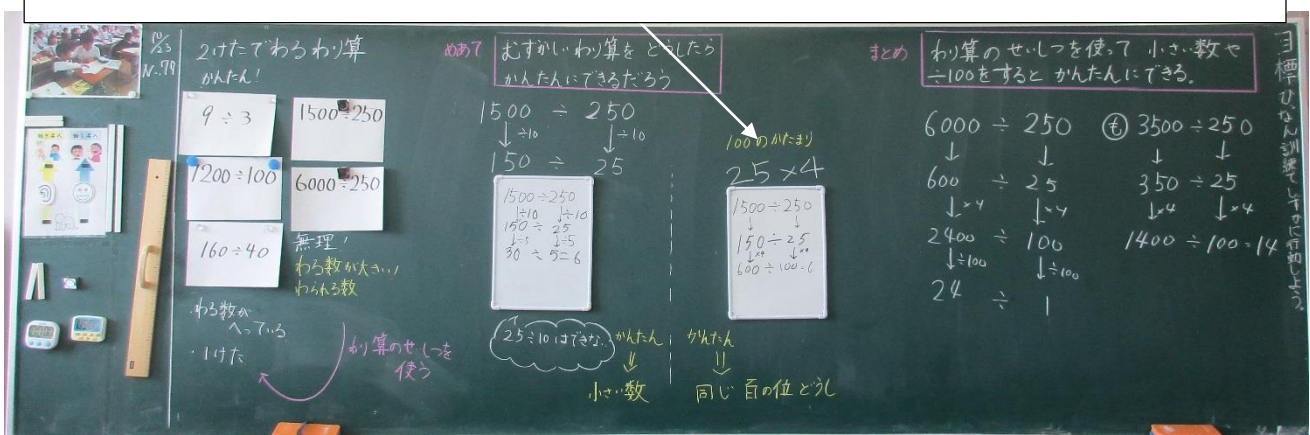 12/23
No.79
2けたでわるわり算
かんたん!
9÷3
1500÷250
1200÷100
6000÷250
160÷40
無理!
わる数が大きい!
わられる数
・わる数が
へっている
・1けた
わり算のせいしつを
使う
めあて
むずかしいわり算を どうしたら
かんたんにできるだろう
1500 ÷ 250
↓÷10 ↓÷10
150 ÷ 25
1500÷250
↓÷10 ↓÷10
150÷25
↓÷5 ↓÷5
30÷5=6
25÷10はできな
かんたん
⇓
小さい数
100のかたまり
25×4
1500÷250
↓ ↓
150÷25
↓×4 ↓×4
600÷100=6
かんたん
⇓
同じ 百の位どうし
まとめ
わり算のせいしつを使って 小さい数や
÷100をすると かんたんにできる。
6000 ÷ 250
↓ ↓
600 ÷ 25
↓×4 ↓×4
2400 ÷ 100
↓÷100 ↓÷100
24 ÷ 1
も 3500÷250
↓ ↓
350÷25
↓×4 ↓×4
1400÷100=14
目標 ひなん訓練でしずかに行動しよう。